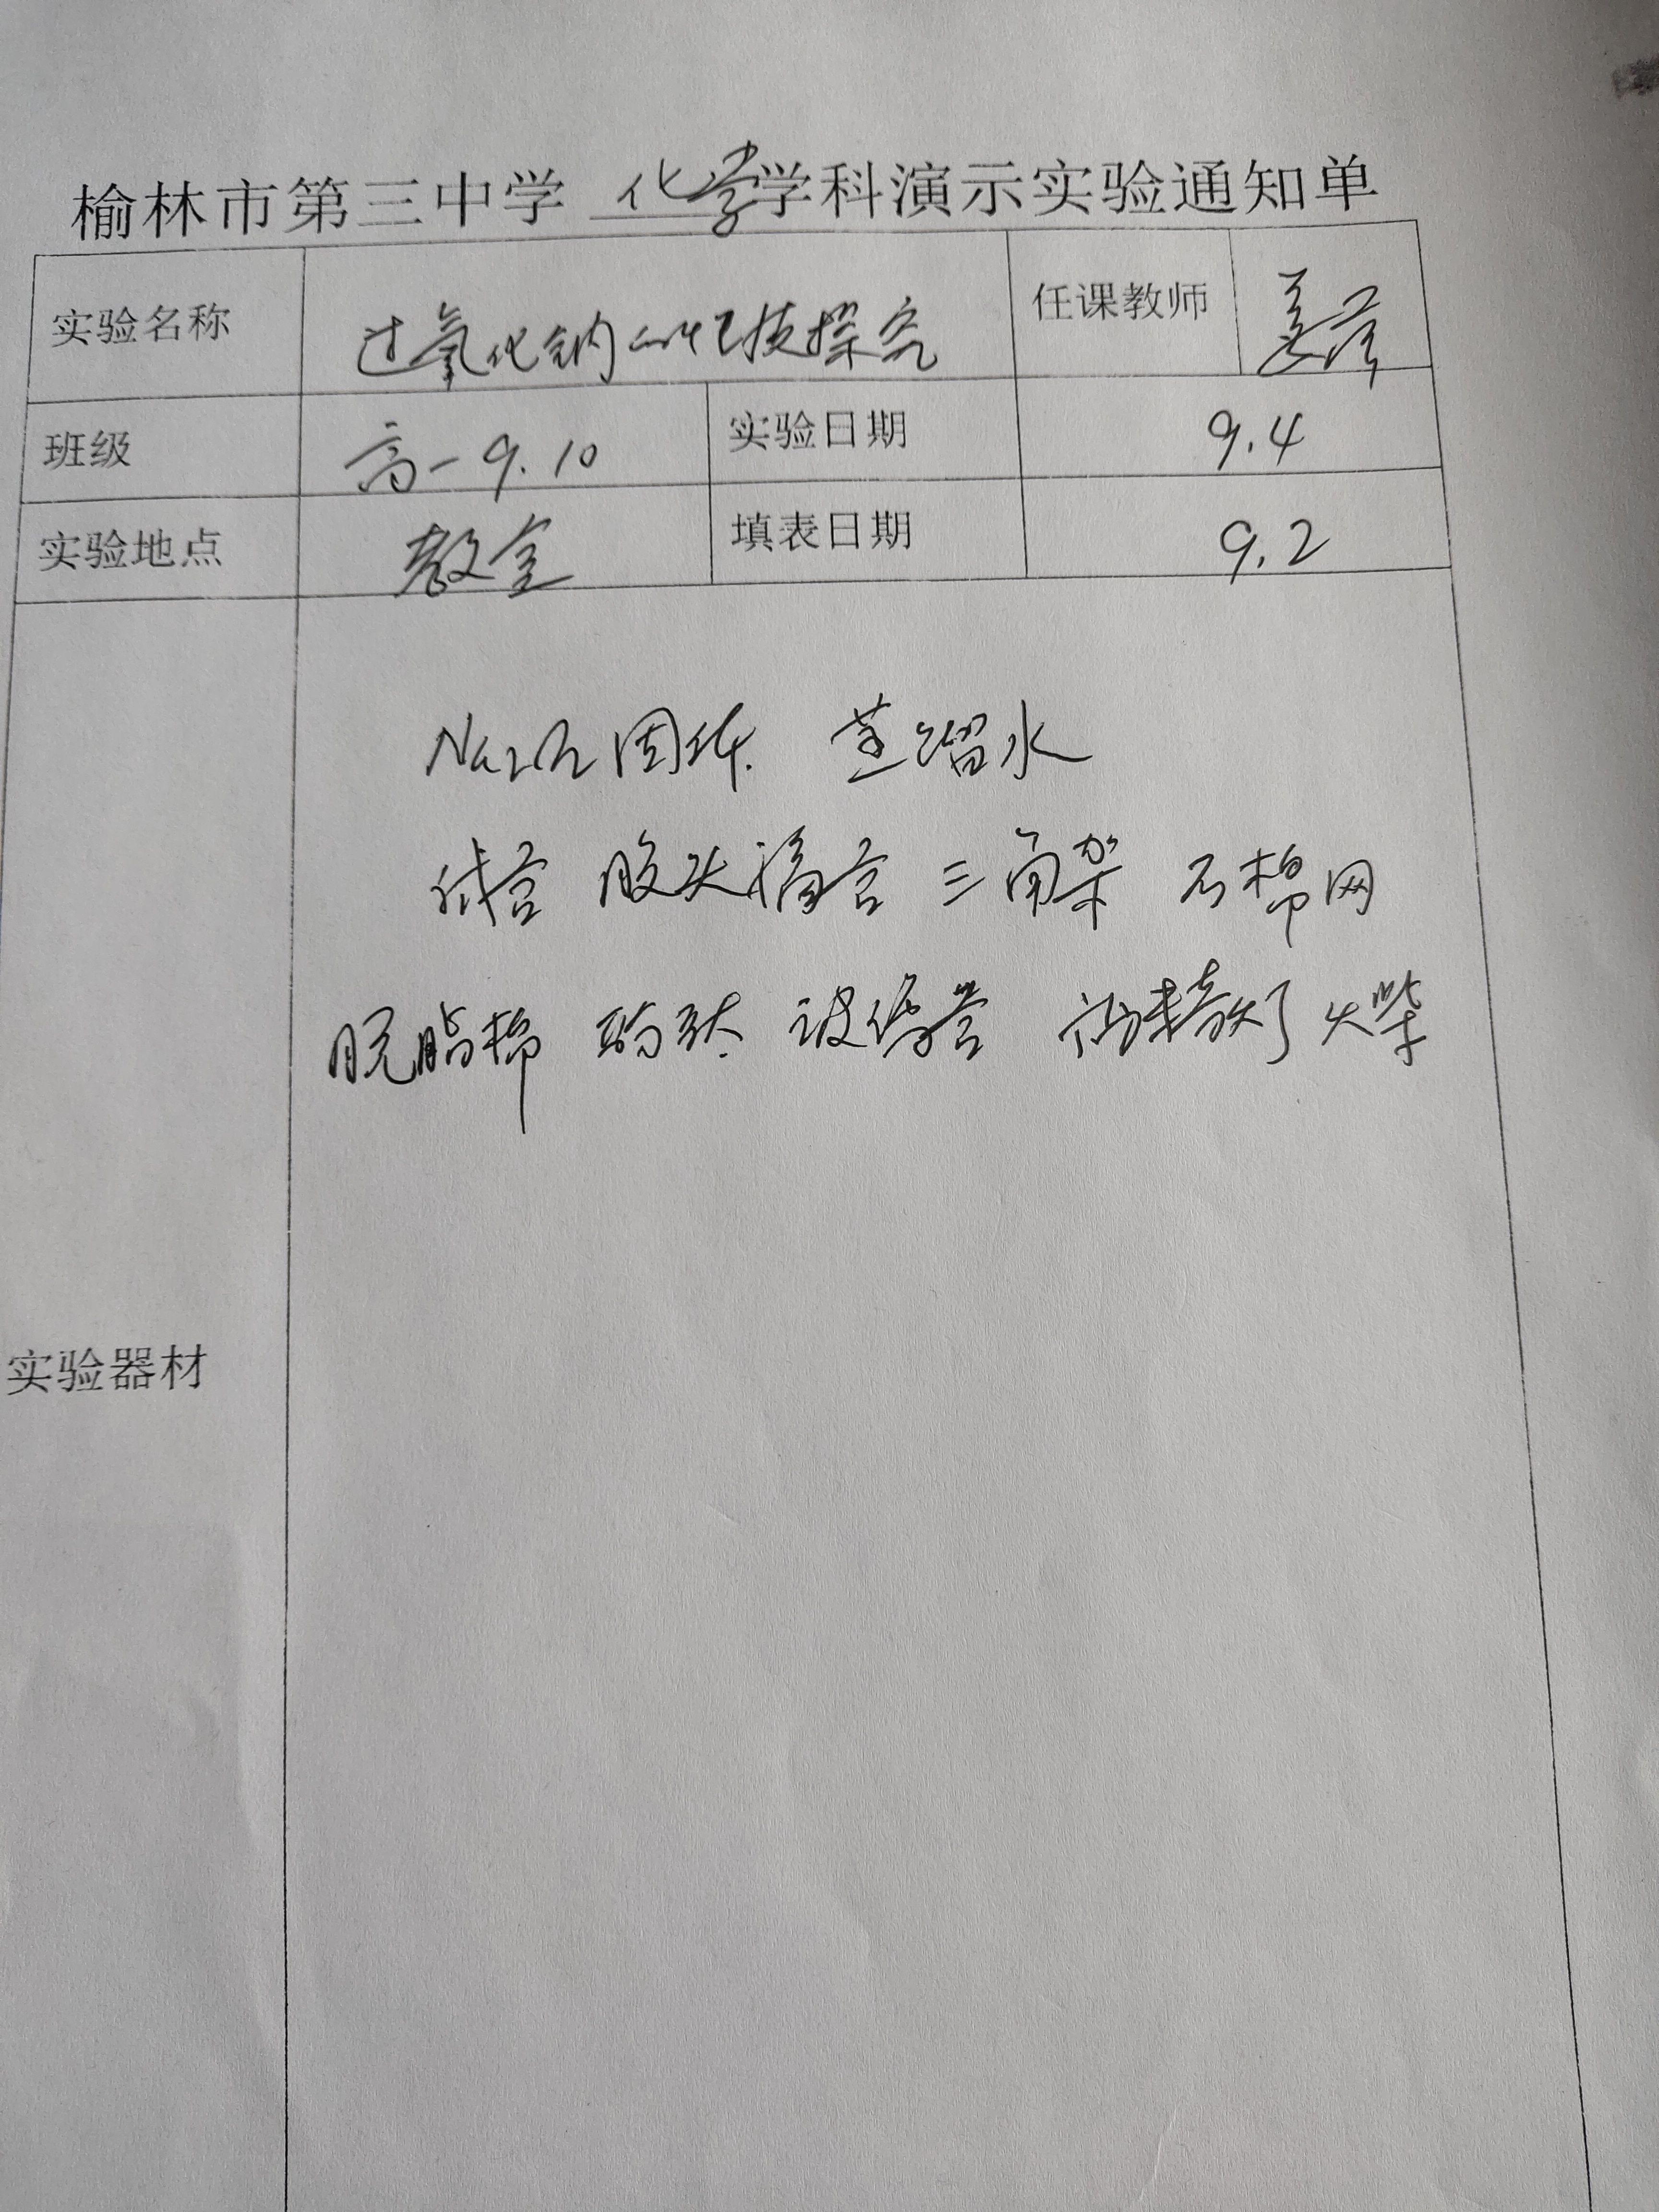 榆林市第三中学 化学学科演示实验通知单
实验名称 过氧化钠的性质探究 任课教师 姜
班级 高一9.10 实验日期 9.4
实验地点 教室 填表日期 9.2
Na2O2固体. 蒸馏水
试管 胶头滴管 三角架 石棉网
脱脂棉 酚酞 玻璃管 火柴
实验器材